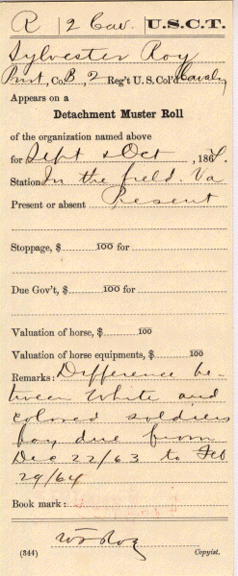 R | 2 Cav. | U.S.C.T.
Sylvester Roy
Pvt, Co. B, 2 Reg't U. S. Col'd Cavalry
Appears on a
Detachment Muster Roll
of the organization named above
for Sept & Oct, 1864.
Station In the field. Va
Present or absent Present
Stoppage, $ 100 for
Due Gov't, $ 100 for
Valuation of horse, $ 100
Valuation of horse equipments, $ 100
Remarks: Difference be-
tween White and
colored soldiers
pay due from
Dec 22/63 to Feb
29/64
Book mark:
(344) Copyist.